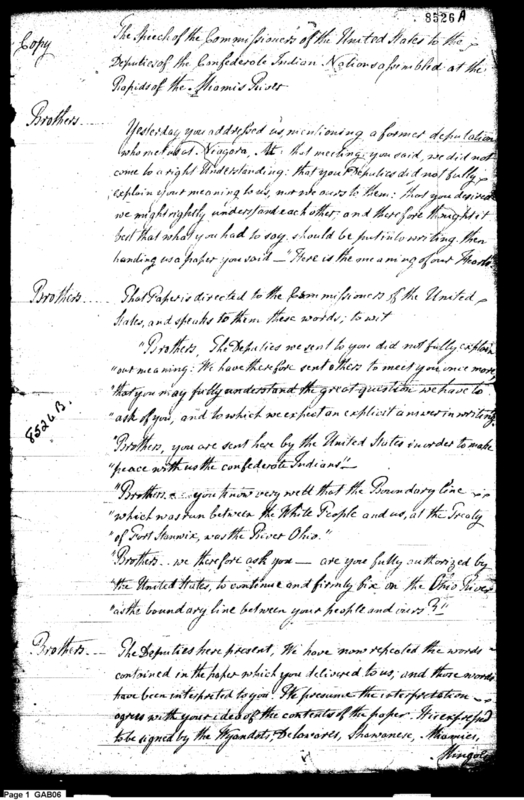 8526 A
Copy
The Speech of the Commissioners of the United States to the
Deputies of the Confederate Indian Nations assembled at the
Rapids of the Miamis River
Brothers
Yesterday you addressed us, mentioning a former deputation
who met us at Niagara. At that meeting you said, we did not
come to a right Understanding: that your Deputies did not fully
explain your meaning to us, nor we ours to them: that you desired
we might rightly understand each other; and therefore thought it
best that what you had to say should be put into writing. then
handing us a paper you said — "Here is the meaning of our Hearts."
Brothers
That Paper is directed to the Commissioners of the United
States, and speaks to them these words; to wit
"Brothers. The Deputies we sent to you did not fully explain
"our meaning: We have therefore sent others to meet you once more,
"that you may fully understand the great question we have to
"ask of you, and to which we expect an explicit answer in writing.
8526 B.
"Brothers, you are sent here by the United States in order to make
"peace with us the confederate Indians"
"Brothers. you know very well that the Boundary line
"which was run between the White People and us, at the Treaty
"of Fort Stanwix, was the River Ohio."
"Brothers. we therefore ask you — are you fully authorized by
"the United States, to continue and firmly fix on the Ohio River
"as the boundary line between your people and ours?"
Brothers
The Deputies here present, We have now repeated the words
contained in the paper which you delivered to us; and those words
have been interpreted to you. We presume the interpretation
agrees with your idea of the contents of the paper. It is expressed
to be signed by the Wyandots, Delawares, Shawanese, Miamies,
Mingoes
Page 1 GAB06